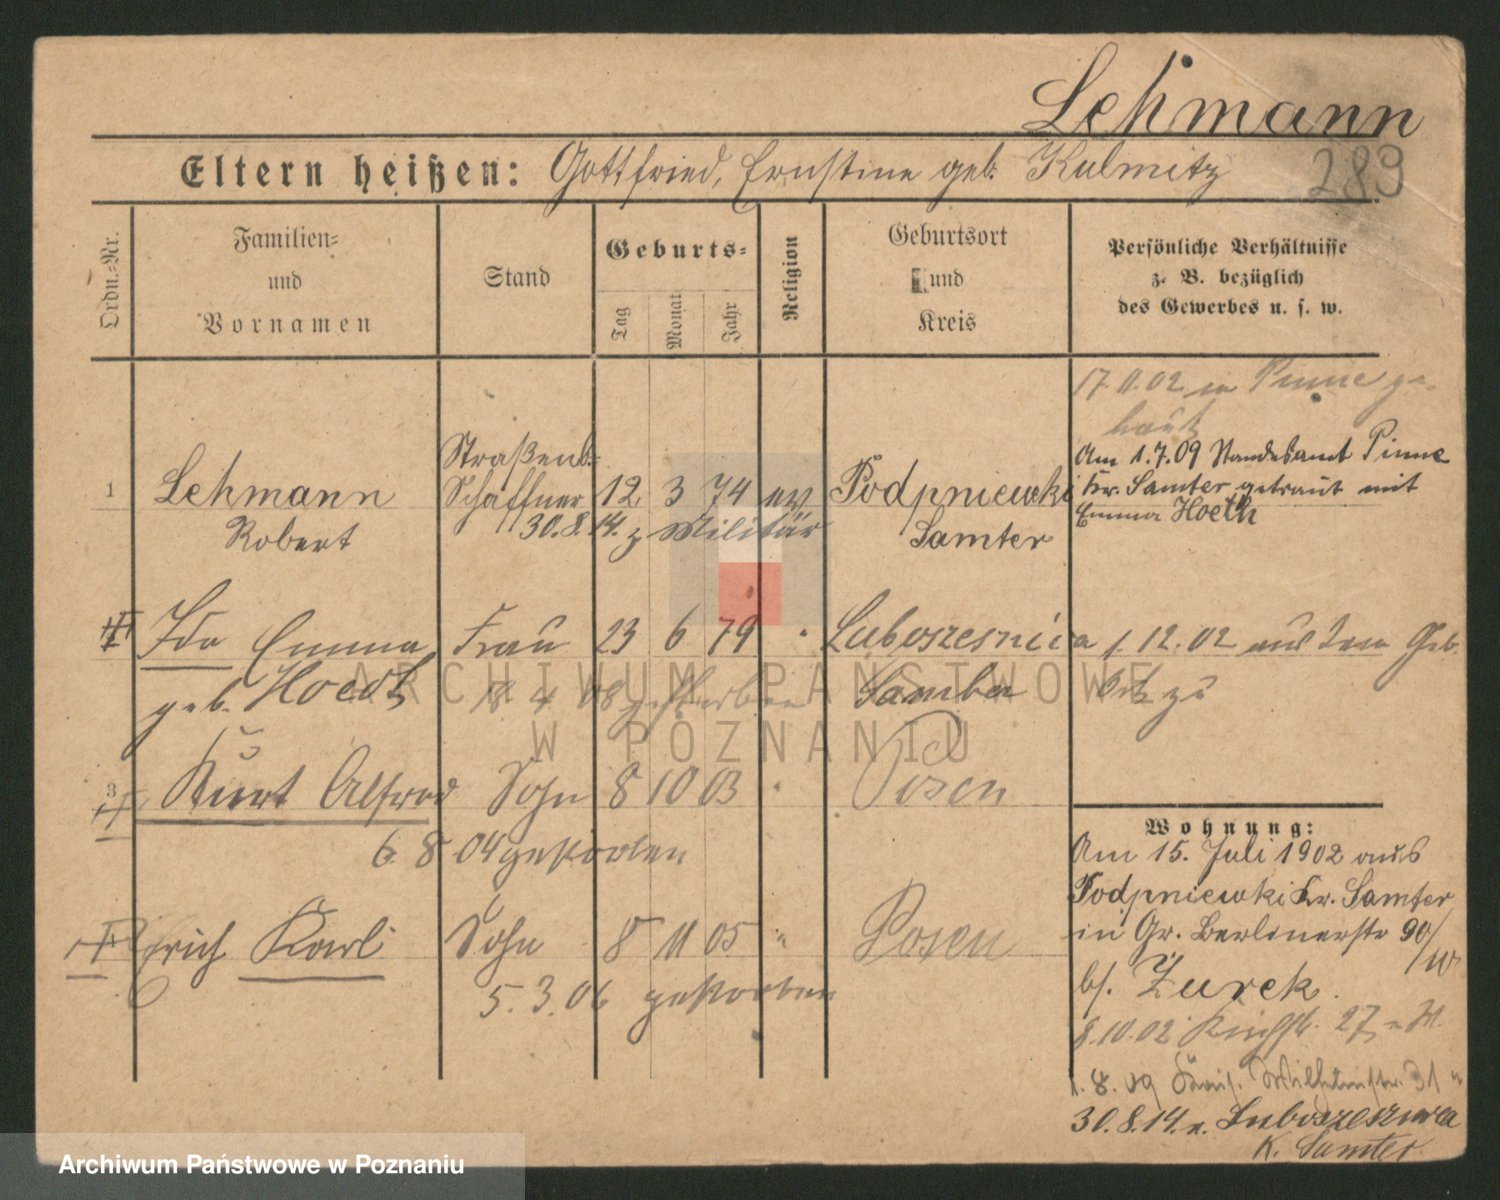 Lehmann
Eltern heißen: Gottfried, Ernstine geb. Kulmitz
289
Ordn.=Nr.
Familien=
und
Vornamen
Stand
Geburts=
Tag
Monat
Jahr
Religion
Geburtsort
und
Kreis
Persönliche Verhältnisse
z. B. bezüglich
des Gewerbes u. s. w.
17.11.02 in Pinne ge-
traut
Am 1.7.09 Standesamt Pinne
Kr. Samter getraut mit
Emma Hoeth
1 Lehmann Robert
Straßenb=
Schaffner 12 3 74 ev. Podpniewki
Samter
30.8.14. z Militär
Ida Emma Frau 23 6 79 " Luboszesnica
geb. Hoedt
Samter
18 4 08 gestorben
1.12.02 aus dem Geb.
Ort zu
3 Kurt Alfred Sohn 8 10 03 " Posen
6 8 04 gestorben
Erich Karl Sohn 8 11 05 " Posen
5.3.06 gestorben
Wohnung:
Am 15. Juli 1902 aus
Podpniewki Kr. Samter
in Gr. Berlinerstr 90/
bs. Zurek.
8.10.02 27
1.8.09 Wilhelmstr. 31
30.8.14. n. Luboszesnica
K. Samter
ARCHIWUM PAŃSTWOWE
W POZNANIU
Archiwum Państwowe w Poznaniu